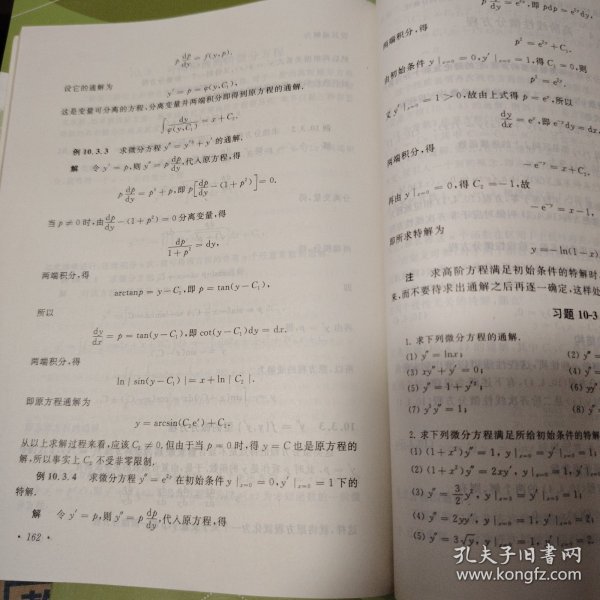 p dp/dy = f(y,p).
设它的通解为 y′ = p = φ(y,C₁),
这是变量可分离的方程,分离变量并两端积分即得到原方程的通解.
∫ dy/φ(y,C₁) = x + C₂.
例 10.3.3 求微分方程 y″ = y′³ + y′ 的通解.
解 令 y′ = p, 则 y″ = p dp/dy, 代入原方程,得
p dp/dy = p³ + p, 即 p[dp/dy − (1+p²)] = 0.
当 p ≠ 0 时,由 dp/dy − (1+p²) = 0 分离变量,得
dp/(1+p²) = dy,
两端积分,得
arctanp = y − C₁, 即 p = tan(y − C₁),
所以
dy/dx = p = tan(y − C₁), 即 cot(y − C₁)dy = dx.
两端积分,得
ln | sin(y − C₁) | = x + ln | C₂ |.
即原方程通解为
y = arcsin(C₂eˣ) + C₁.
从以上求解过程来看,应该 C₂ ≠ 0,但由于当 p = 0 时,得 y = C 也是原方程的
解,所以事实上 C₂ 不受非零限制.
例 10.3.4 求微分方程 y″ = e²ʸ 在初始条件 y |ₓ₌₀ = 0, y′ |ₓ₌₀ = 1 下的
特解.
解 令 y′ = p, 则 y″ = p dp/dy, 代入原方程,得
· 162 ·
p dp/dy = e²ʸ, 即 pdp = e²ʸdy,
两端积分,得
p² = e²ʸ + C₁,
由初始条件 y |ₓ₌₀ = 0, y′ |ₓ₌₀ = 1, 得 C₁ = 0, 则
p² = e²ʸ
又 y′ |ₓ₌₀ = 1 > 0, 故由上式得 p = eʸ, 所以
dy/dx = eʸ, 即 e⁻ʸdy = dx,
两端积分,得
− e⁻ʸ = x + C₂.
再由 y |ₓ₌₀ = 0, 得 C₂ = − 1, 故
− e⁻ʸ = x − 1,
即所求特解为
y = − ln(1 − x)
注 求高阶方程满足初始条件的特解时,
来,而不要待求出通解之后再逐一确定,这样处
习题 10-3
1. 求下列微分方程的通解.
(1) y″ = lnx; (2) y″ =
(3) xy″ + y′ = 0; (4) y″
(5) y″ = 1 + y′²; (6) yy″
(7) y³y″ = 1; (8) y″ =
2. 求下列微分方程满足所给初始条件的特解
(1) (1 + x²)y″ = 1, y |ₓ₌₀ = y′ |ₓ₌₀ = 1;
(2) (1 + x²)y″ = 2xy′, y |ₓ₌₀ = 1, y′ |
(3) y″ = 3/2 y², y |ₓ₌₃ = y′ |ₓ₌₃ = 1;
(4) y″ = 2yy′, y |ₓ₌₀ = 1, y′ |ₓ₌₀ = 2;
(5) y″ = 3√y, y |ₓ₌₀ = 1, y′ |ₓ₌₀ = 2.
孔夫子旧书网
www.kongfz.com